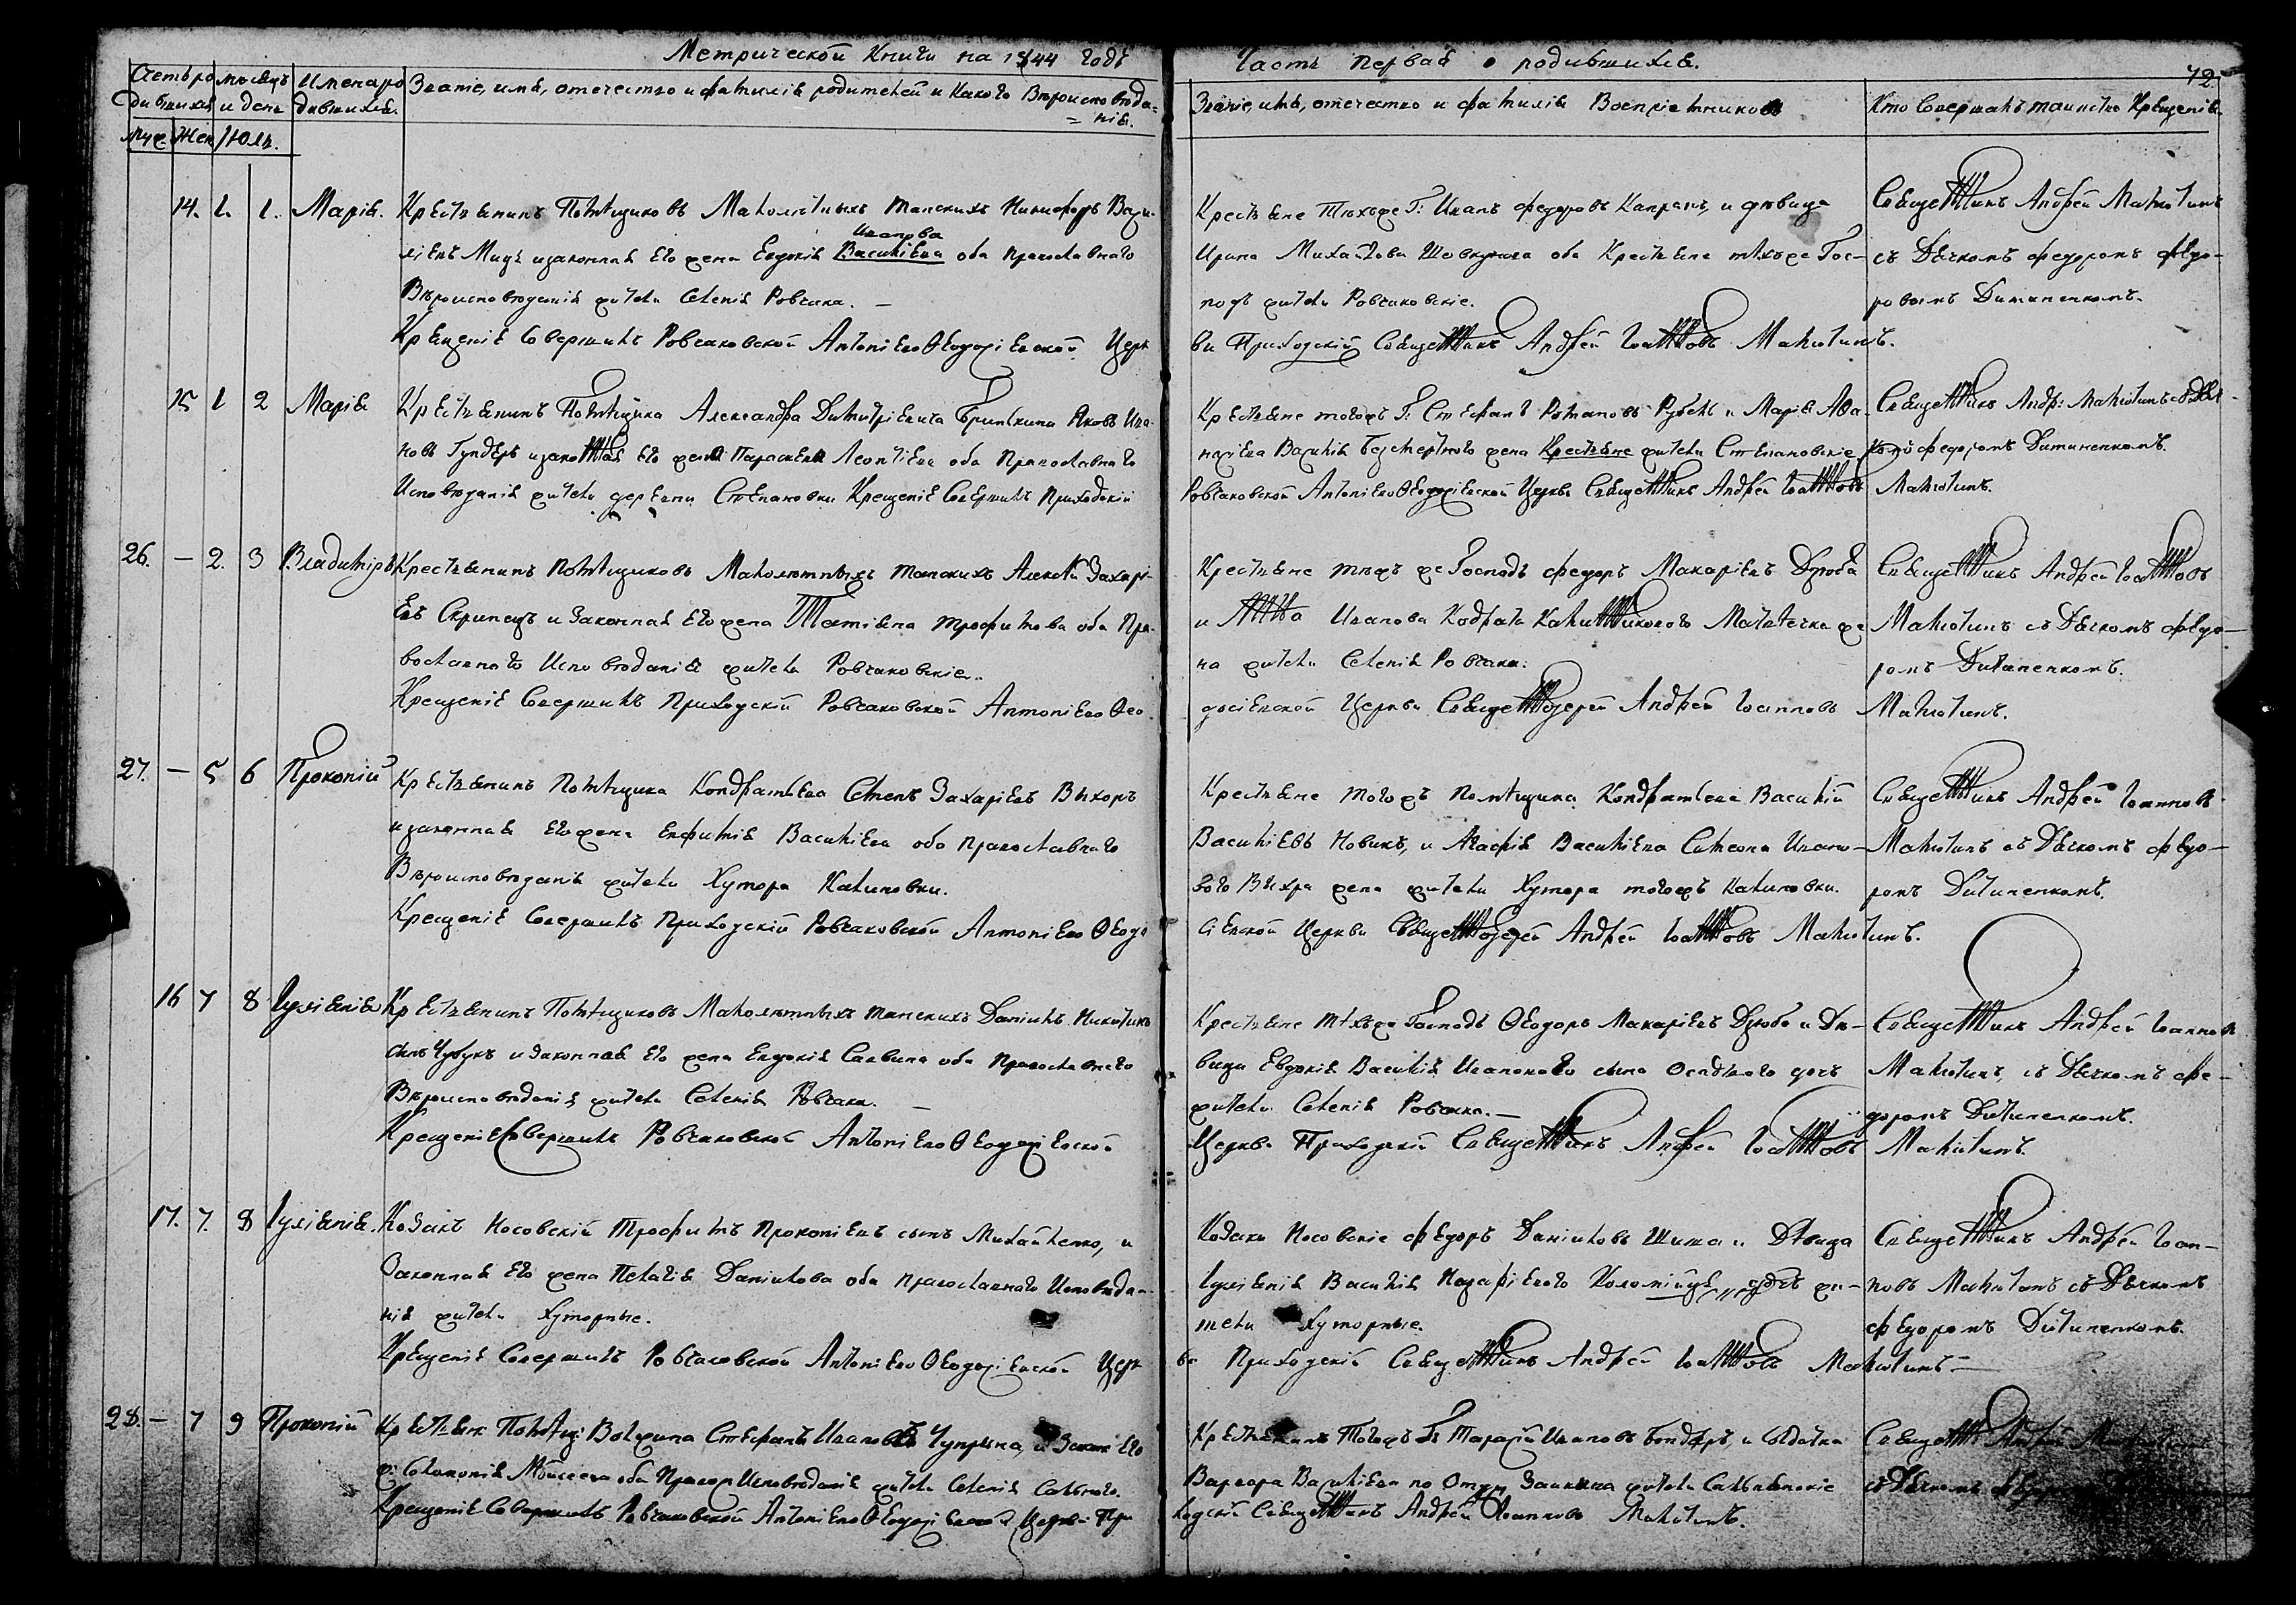 Метрической Книги на 1844 годъ
Часть первая о родившихся.
72.
Счетъ ро мѣсяцъ Имена ро Званіе, имя, отчество и фамилія родителей и какого Вѣроисповѣда-
дившихся и день дившихся. = нія.
Муж. Жен. Июль.
Званіе, имя, отчество и фамилія Воспріемниковъ
Кто совершалъ таинство крещенія.
14. 1. 1. Марія. Крестьянинъ Помѣщиковъ Малолѣтныхъ Танскихъ Никифоръ Васи-
Иванова
ліевъ Мицъ и законная его жена Евдокія Василіева оба православнаго
Вѣроисповѣданія жители Селенія Ровчака. —
Крещеніе Совершилъ Ровчаковской Антоніево Ѳеодосіевской Церк
Крестьяне Тѣхъже Г: Иванъ Федоровъ Капранъ, и дѣвица
Ирина Михайлова Шовкунова оба Крестьяне тѣхъже Гос-
подъ жители Ровчаковскіе.
ви Приходскій Священникъ Андрей Іоанновъ Малютинъ.
Священникъ Андрей Малютинъ
съ Дьячкомъ Федоромъ Федо-
ровымъ Диминенкомъ.
15 1 2 Марія Крестьянинъ Помѣщика Александра Димитріевича Яковъ Ива-
новъ Гундеръ и законная его жена Параскева Леонтіева оба Православнаго
Исповѣданія жители деревни Степановки Крещеніе Совершилъ Приходскій
Крестьяне тогожъ Г: Стефанъ Романовъ Рубель и Марія Афа-
насіева Василія Безсмертнаго жена Крестьяне жители Степановскіе
Ровчаковской Антоніево Ѳеодосіевской Церкви Священникъ Андрей Іоанновъ Малютинъ.
Священникъ Андр: Малютинъ съ Дья-
комъ Федоромъ Диминенкомъ.
26. — 2. 3 Владиміръ Крестьянинъ Помѣщиковъ Малолѣтныхъ Танскихъ Алексѣй Захарі-
евъ Скрипецъ и Законная его жена Татіана Трофимова оба Пра-
вославнаго Исповѣданія жители Ровчаковскіе.
Крещеніе Совершилъ Приходскій Ровчаковской Антоніево Ѳео-
Крестьяне тѣхъ же Господъ Федоръ Макаріевъ Дзюба
и Анна Иванова Кодрата Матвѣечка же
на жители Селенія Ровчака.
досіевской Церкви Священноіерей Андрей Іоанновъ Малютинъ.
Священникъ Андрей Іоанновъ
Малютинъ съ Дьячкомъ Федо-
ромъ Диминенкомъ.
27. — 5 6 Прокопій Крестьянинъ Помѣщика Кондратьева Семенъ Захаріевъ Вихорь
и законная его жена Евфимія Василіева оба Православнаго
Вѣроисповѣданія жители Хутора Калиновки.
Крещеніе Совершилъ Приходскій Ровчаковской Антоніево Ѳеодо
Крестьяне тогожъ помѣщика Кондратьева Василій
Василіевъ Новикъ, и Агафія Василіева Симеона Ивано-
вого Вихра жена жители Хутора тогожъ Калиновки.
сіевской Церкви Священноіерей Андрей Іоанновъ Малютинъ.
Священникъ Андрей Іоанновъ
Малютинъ съ Дьячкомъ Федо-
ромъ Диминенкомъ.
16 7 8 Іуліанія Крестьянинъ Помѣщиковъ Малолѣтныхъ Танскихъ Даніилъ Никитинъ
сынъ Чубукъ и Законная его жена Евдокія Саввина оба Православнаго
Вѣроисповѣданія жители Селенія Ровчака. —
Крещеніе Совершилъ Ровчаковской Антоніево Ѳеодосіевской
Крестьяне тѣхъже Господъ Ѳеодоръ Макаріевъ Дзюба и Дѣ-
вица Евдокія Василія Иванового сына дочъ
жители Селенія Ровчака. —
Церкви Приходскій Священникъ Андрей Іоанновъ Малютинъ.
Священникъ Андрей Іоанновъ
Малютинъ, съ Дьячкомъ Фе-
доромъ Диминенкомъ.
17. 7. 8 Іуліанія. Козакъ Носовскій Трофимъ Прокопіевъ сынъ Михайленко, и
Законная его жена Пелагія Даніилова оба православнаго Исповѣда-
нія жители Хуторные.
Крещеніе Совершилъ Ровчаковской Антоніево Ѳеодосіевской Церк
Козаки Носовскіе Федоръ Даніиловъ Шика и Дѣвица
Іуліанія Василія Назаріевого дочъ жи-
тели Хуторные.
ви Приходскій Священникъ Андрей Іоанновъ Малютинъ —
Священникъ Андрей Іоан-
новъ Малютинъ съ Дьячкомъ
Федоромъ Диминенкомъ.
28. — 7 9 Прокопій Крестьян: Помѣщ: Стефанъ Ивановъ Чупрына, и Закон: его
ж: Соломонія Моисеева оба Правос: Исповѣданія жители Селенія
Крещеніе Совершилъ Ровчаковской Антоніево Ѳеодосіевской Церкви При
Крестьянинъ Тогожъ Г. Тарасій Ивановъ Бондарь, и Солдатка
Варвара Василіева по Отцу жители
ходскій Священникъ Андрей Іоанновъ Малютинъ.
Священ: Андрей
съ Дьячкомъ